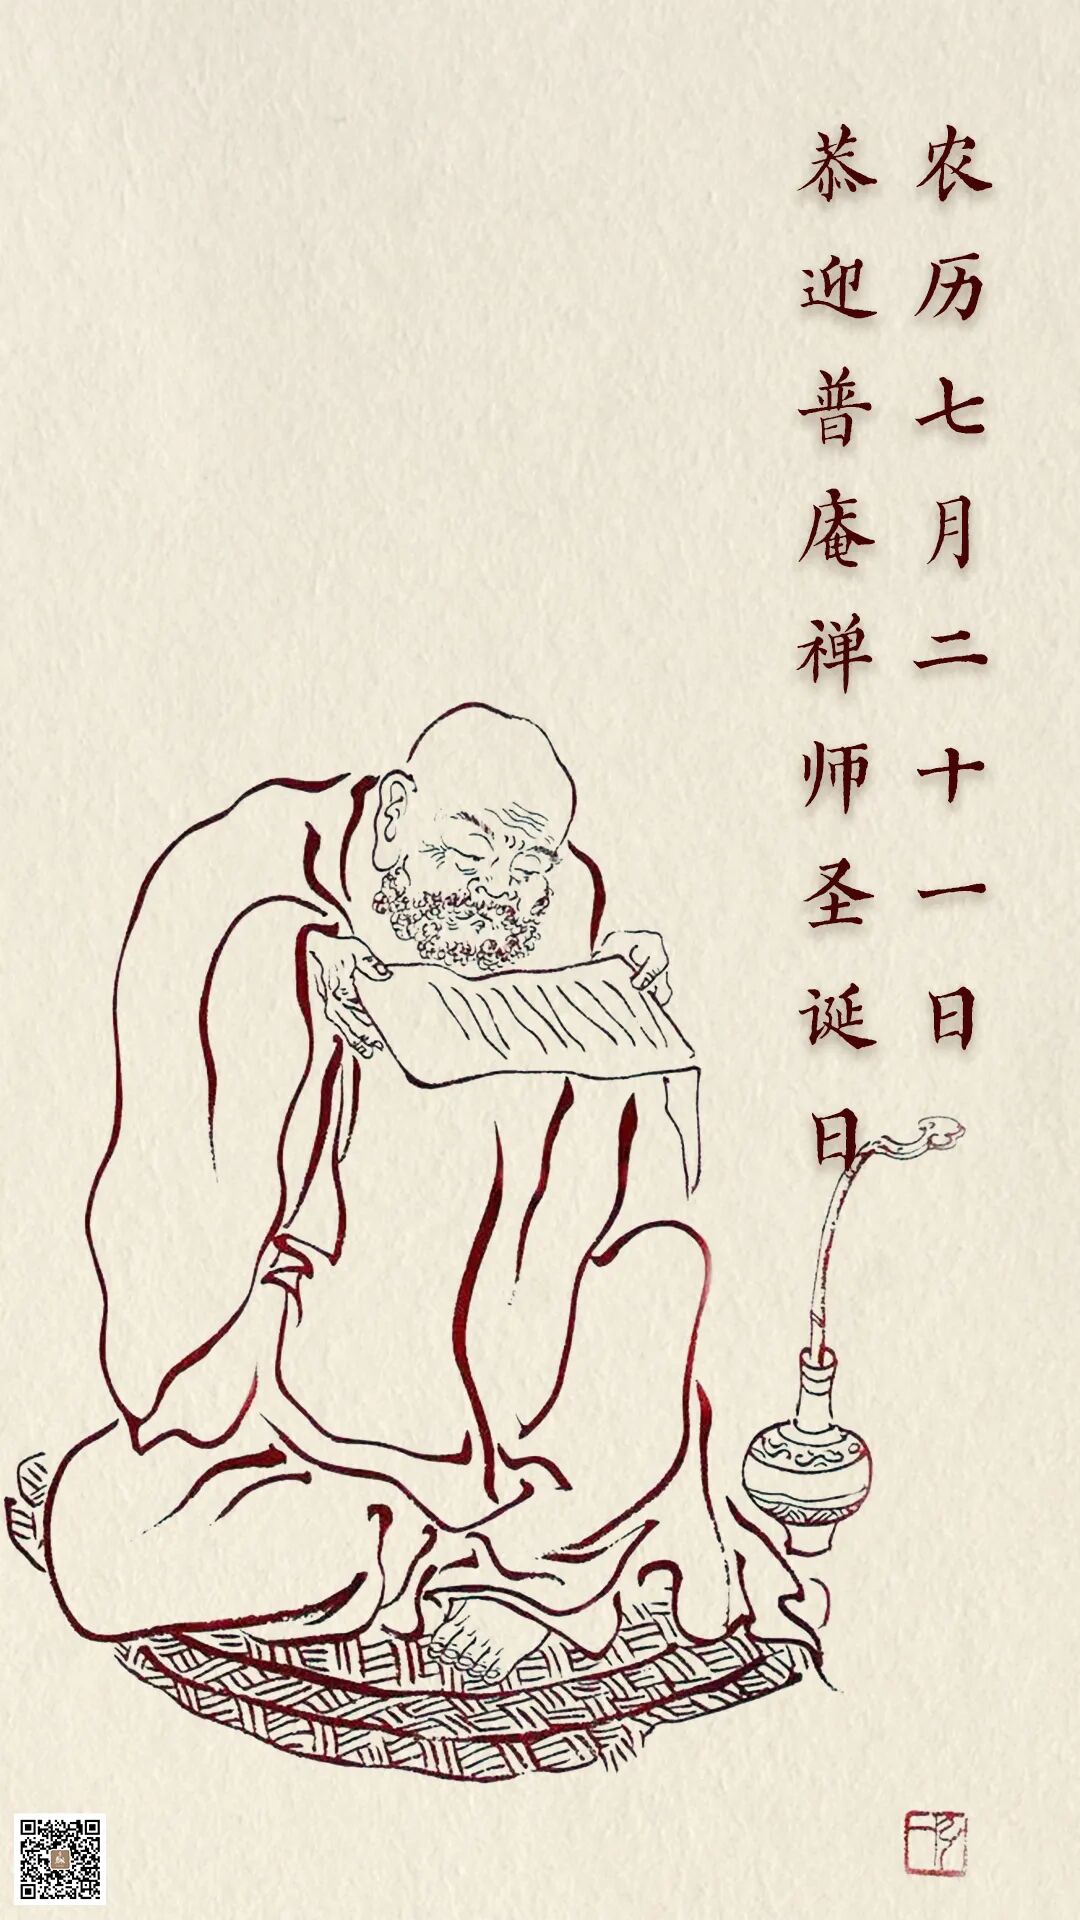 农历七月二十一日
恭迎普庵禅师圣诞日